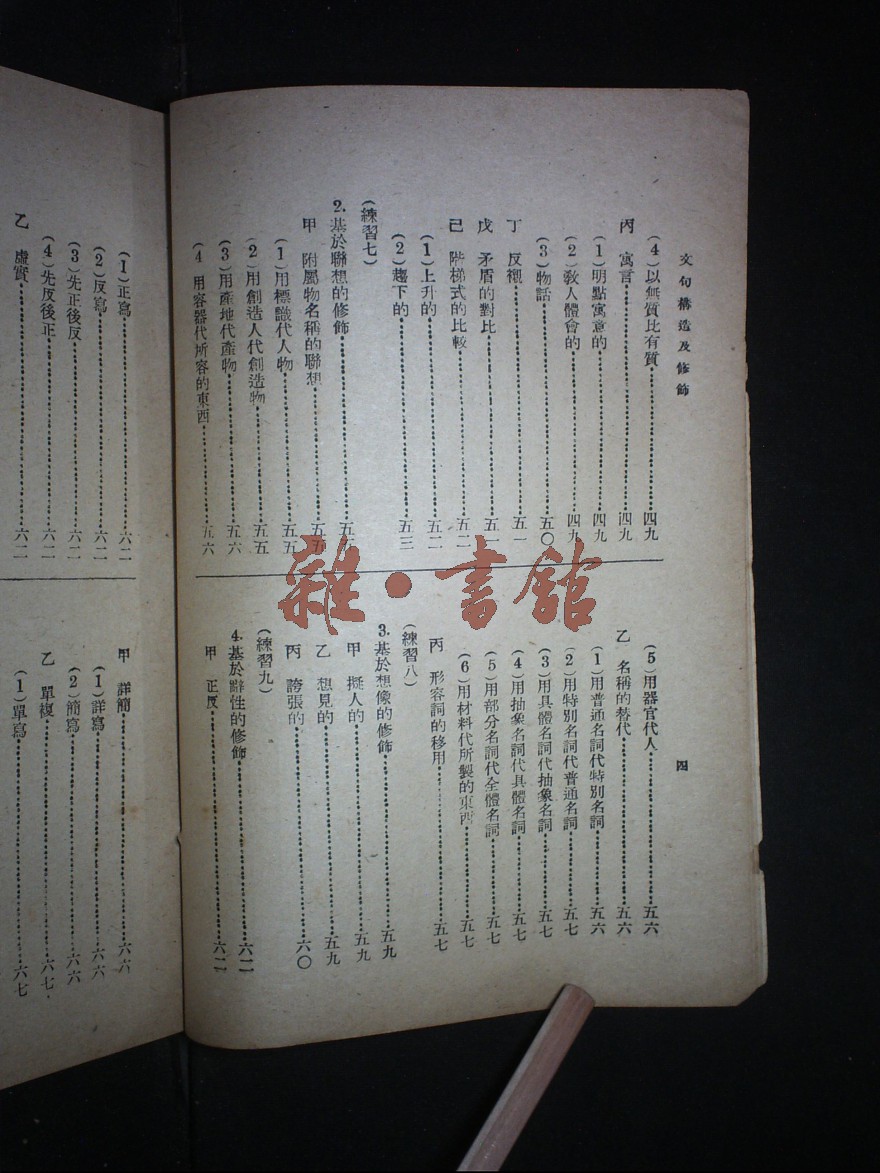 文句構造及修飾
四
(4)以無質比有質……四九
丙 寓言……四九
(1)明點寓意的……四九
(2)敎人體會的……四九
(3)物話……五〇
丁 反襯……五一
戊 矛盾的對比……五一
己 階梯式的比較……五二
(1)上升的……五二
(2)趨下的……五三
(練習七)
2.基於聯想的修飾……五
甲 附屬物名稱的聯想……五五
(1)用標識代人物……五五
(2)用創造人代創造物……五五
(3)用產地代產物……五六
(4 用容器代所容的東西……五六
(5)用器官代人……五六
乙 名稱的替代……五六
(1)用普通名詞代特別名詞……五六
(2)用特別名詞代普通名詞……五七
(3)用具體名詞代抽象名詞……五七
(4)用抽象名詞代具體名詞……五七
(5)用部分名詞代全體名詞……五七
(6)用材料代所製的東西……五七
丙 形容詞的移用……五七
(練習八)
3.基於想像的修飾……五九
甲 擬人的……五九
乙 想見的……五九
丙 誇張的……六〇
(練習九)
4.基於辭性的修飾……六二
甲 正反……六二
(1)正寫……六二
(2)反寫……六二
(3)先正後反……六二
(4)先反後正……六二
乙 虛實……六二
甲 詳簡……六六
(1)詳寫……六六
(2)簡寫……六六
乙 單複……六七
(1)單寫……六七
雜·書館